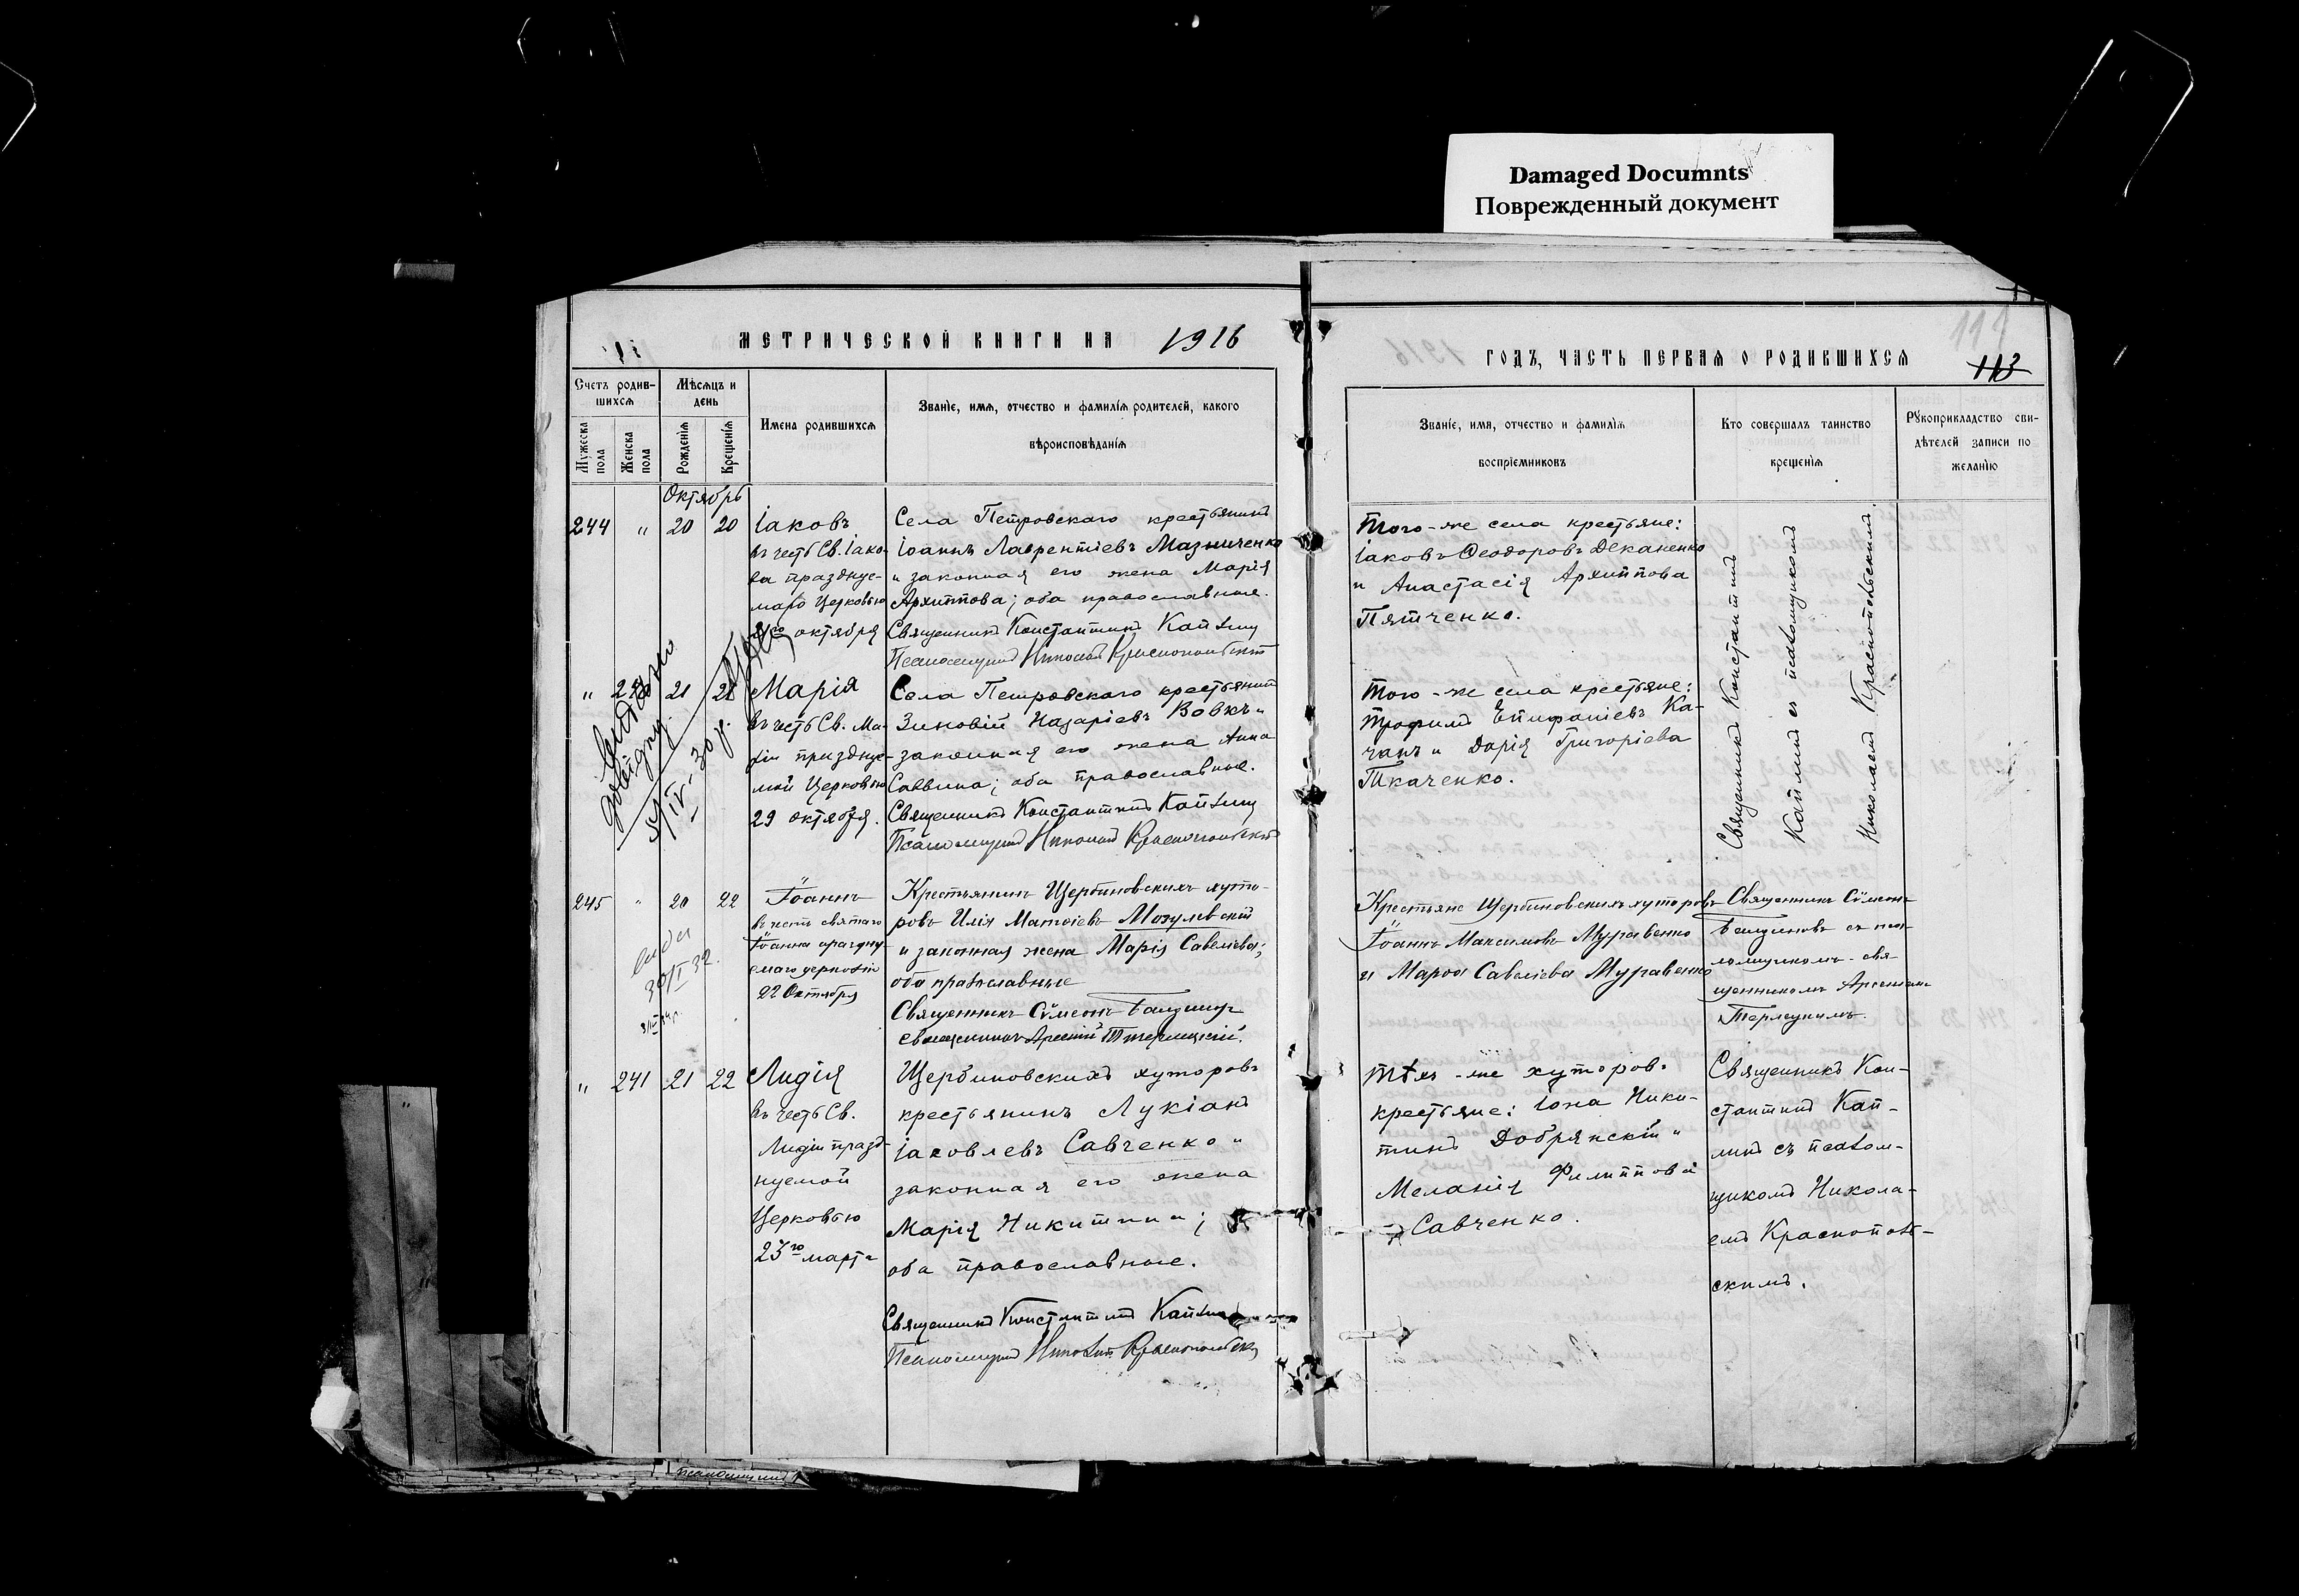 Damaged Documnts
Поврежденный документ
МЕТРИЧЕСКОЙ КНИГИ НА 1916
ГОДЪ, ЧАСТЬ ПЕРВАЯ О РОДИВШИХСЯ
111
113
Счетъ родив-
шихся
Мѣсяцъ и
день
Мужеска
пола
Женска
пола
Рожденія
Крещенія
Имена родившихся
Званіе, имя, отчество и фамилія родителей, какого
вѣроисповѣданія
Званіе, имя, отчество и фамилія
воспріемниковъ
Кто совершалъ таинство
крещенія
Рукоприкладство сви-
дѣтелей записи по
желанію
Октябрь
244 " 20 20
Іаковъ
въ честь Св. Іако-
ва празднуе-
маго Церковью
октября
Села Петровскаго крестьянинъ
Іоаннъ Лаврентіевъ Мазниченко
и законная его жена Марія
Архиппова; оба православные.
Священникъ Константинъ Каплинъ
Псаломщикъ Николай Краснопольскій
Того-же села крестьяне:
Іаковъ Ѳеодоровъ Деканенко
и Анастасія Архиппова
Пятченко.
Священникъ Константинъ
Каплинъ съ псаломщикомъ
Николаемъ Краснопольскимъ.
" 21 21
Марія
въ честь Св. Ма-
ріи празднуе-
мой Церковью
29 октября.
Села Петровскаго крестьянинъ
Зиновій Назаріевъ Вовкъ и
законная его жена Анна
Саввина; оба православные.
Священникъ Константинъ Каплинъ
Псаломщикъ Николай Краснопольскій
Того-же села крестьяне:
Трофимъ Епифаніевъ Ка-
чанъ и Дарія Григоріева
Ткаченко.
5/IV-30 г.
245 " 20 22
Іоаннъ
въ честь святаго
Іоанна праздну-
емаго церковію
22 Октября
Крестьянинъ Щербиновскихъ хуто-
ровъ Илія Матѳіевъ Могулевскій
и законная жена Марія Савеліева;
оба православные
Священникъ Сѵмеонъ
священникъ Арсеній Терлецкій.
Крестьяне Щербиновскихъ хуторовъ
Іоаннъ Максимовъ Муравенко
и Марѳа Савеліева Муравенко
Священникъ Сѵмеонъ
съ пса-
ломщикомъ - свя-
щенникомъ Арсеніемъ
Терлецкимъ.
30/I 32.
" 241 21 22
Лидія
въ честь Св.
Лидіи празд-
нуемой
Церковью
23го марта
Щербиновскихъ хуторовъ
крестьянинъ Лукіанъ
Іаковлевъ Савченко и
законная его жена
Марія Никитина;
оба православные.
Священникъ Константинъ Каплинъ
Псаломщикъ Николай Краснопольскій
Тѣхъ-же хуторовъ
крестьяне: Іона Ники-
тинъ Добрянскій и
Меланія Филиппова
Савченко.
Священникъ Кон-
стантинъ Кап-
линъ съ псалом-
щикомъ Никола-
емъ Краснополь-
скимъ.